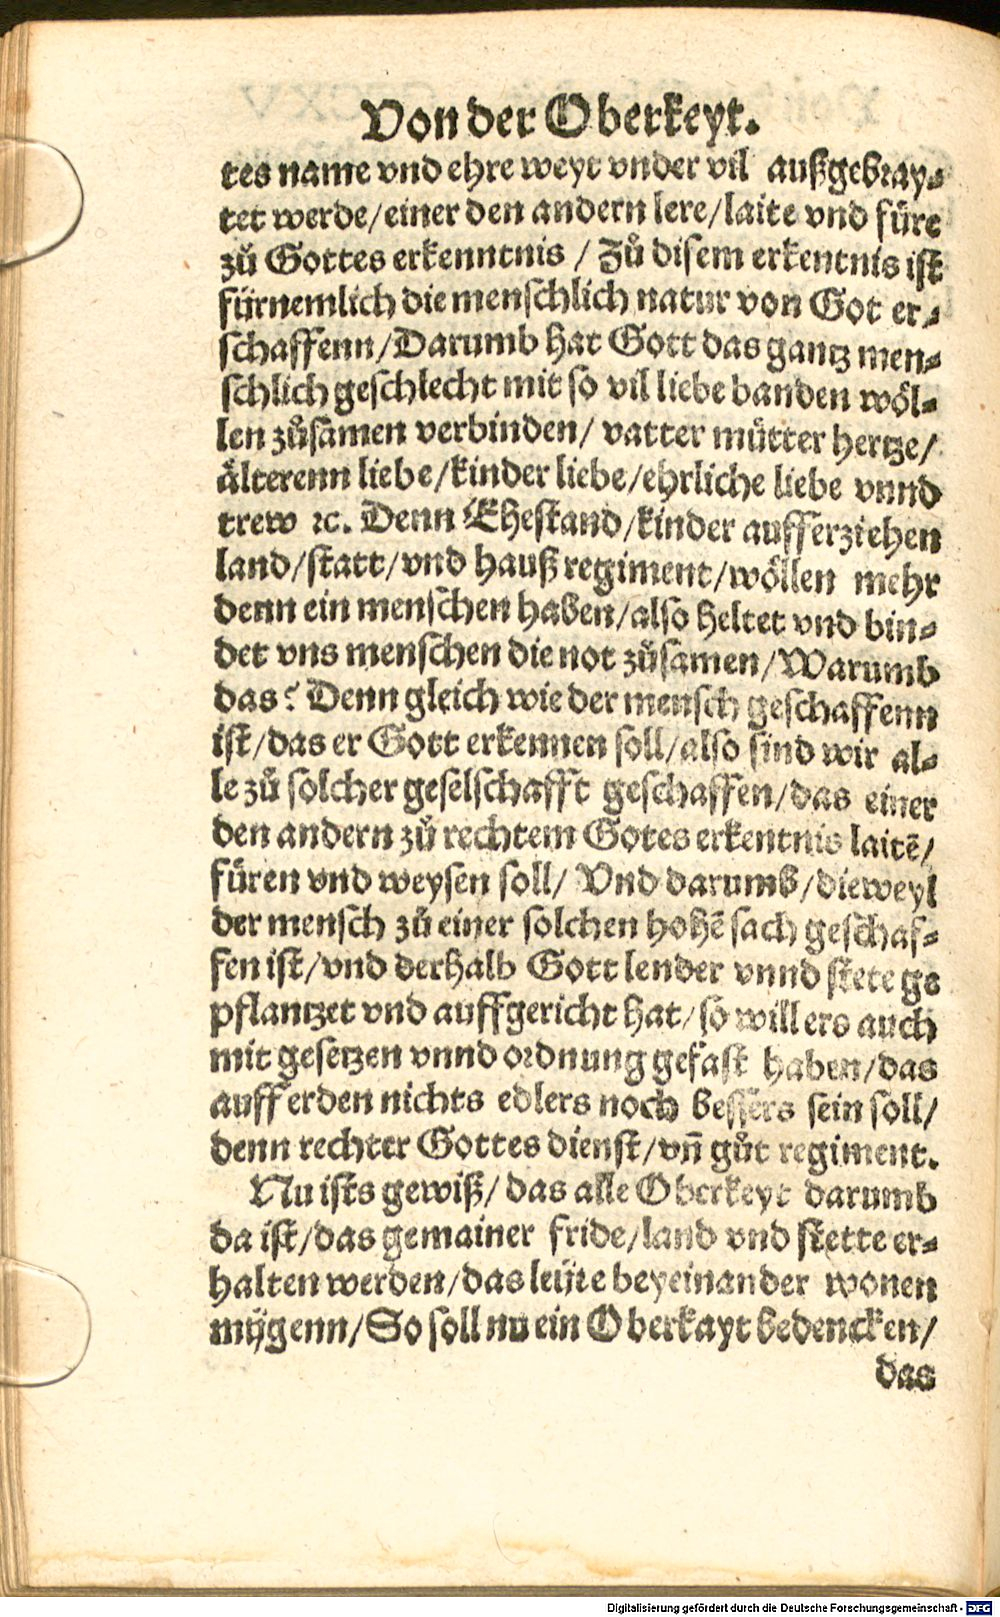 Von der Oberkeyt.
tes name vnd ehre weyt vnder vil außgebray⸗
tet werde/einer den andern lere/laite vnd füre
zů Gottes erkenntnis / Zů disem erkentnis ist
fürnemlich die menschlich natur von Got er⸗
schaffenn/Darumb hat Gott das gantz men⸗
schlich geschlecht mit so vil liebe banden wöl⸗
len zůsamen verbinden/ vatter můtter hertze/
älterenn liebe/kinder liebe/ehrliche liebe vnnd
trew ꝛc. Denn Ehestand/kinder aufferziehen
land/statt/vnd hauß regiment/wöllen mehr
denn ein menschen haben/also heltet vnd bin⸗
det vns menschen die not zůsamen/Warumb
das? Denn gleich wie der mensch geschaffenn
ist/das er Gott erkennen soll/also sind wir al⸗
le zů solcher geselschafft geschaffen/das einer
den andern zů rechtem Gotes erkentnis laitē/
füren vnd weysen soll/ Vnd darumb/dieweyl
der mensch zů einer solchen hohē sach geschaf⸗
fen ist/vnd derhalb Gott lender vnnd stete ge
pflantzet vnd auffgericht hat/so will ers auch
mit gesetzen vnnd ordnung gefast haben/das
auff erden nichts edlers noch bessers sein soll/
denn rechter Gottes dienst/vn̄ gůt regiment.
Nu ists gewiß/das alle Oberkeyt darumb
da ist/das gemainer fride/land vnd stette er⸗
halten werden/das leüte beyeinander wonen
mügenn/So soll nu ein Oberkayt bedencken/
das
Digitalisierung gefördert durch die Deutsche Forschungsgemeinschaft - DFG